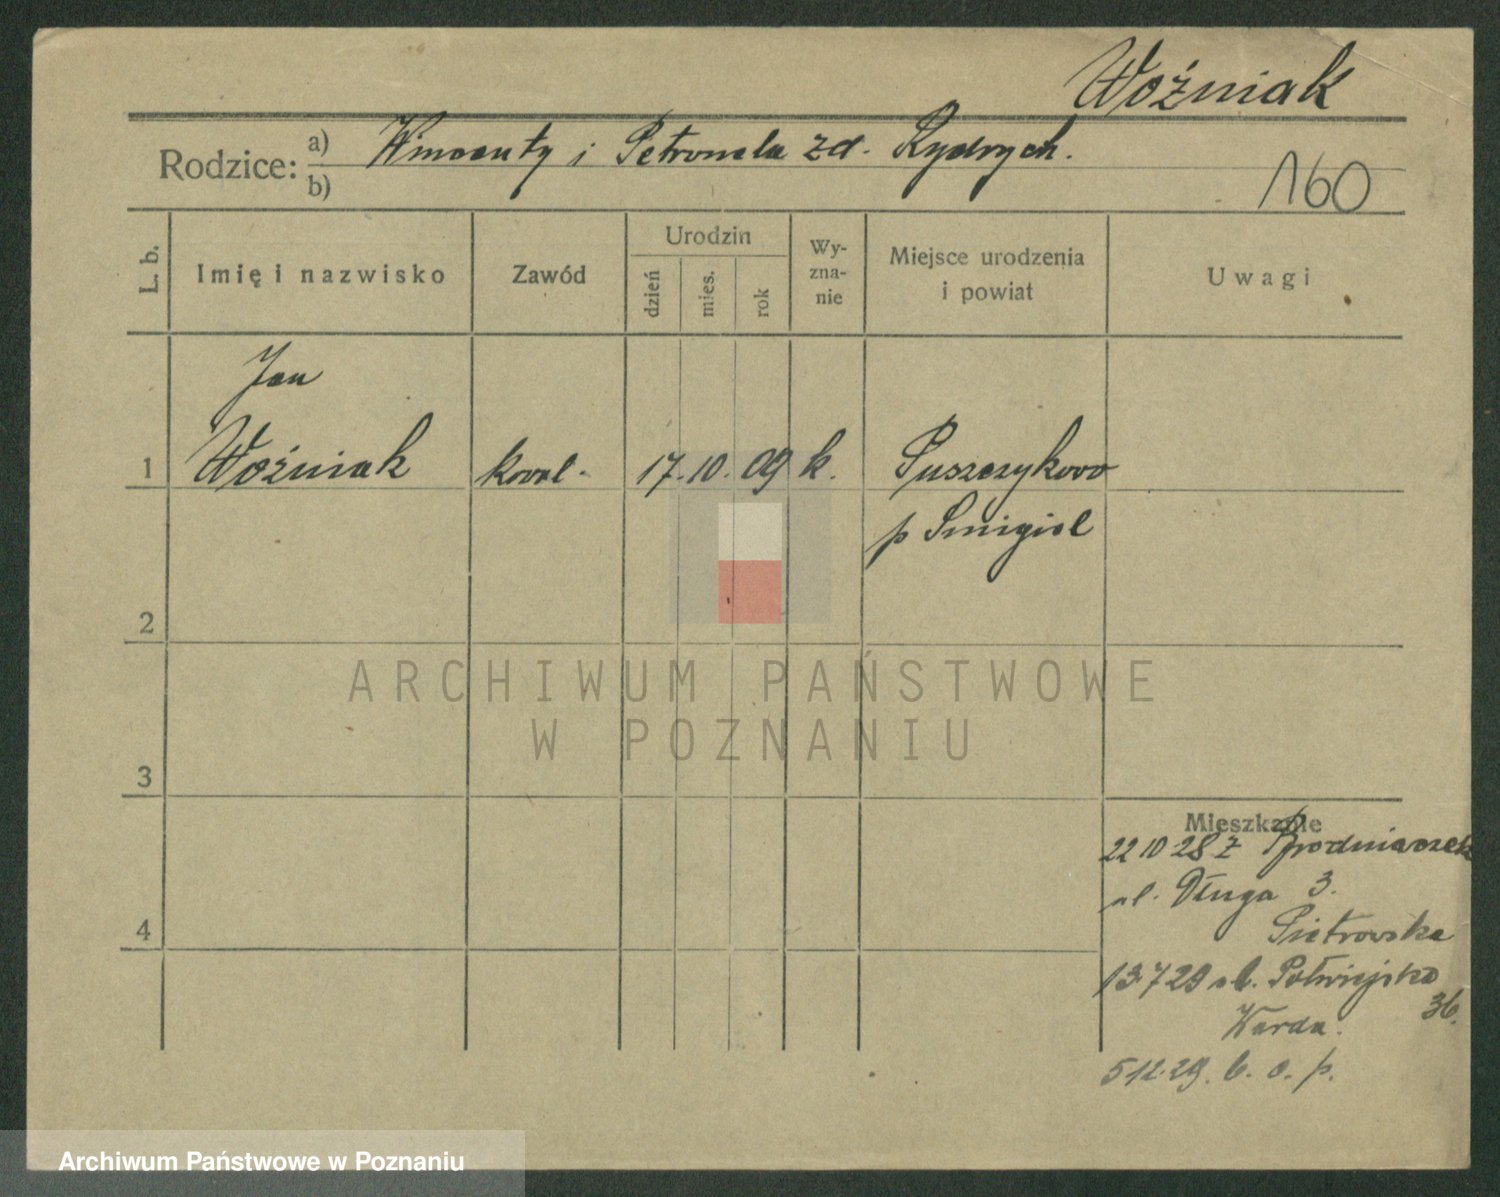 Woźniak
Rodzice: a) Wincenty i Petronela zd. Rydrych.
b)
160
L. b.
Imię i nazwisko
Zawód
Urodzin
dzień
mies.
rok
Wy-
zna-
nie
Miejsce urodzenia
i powiat
Uwagi
Jan
1 Woźniak kowal. 17. 10. 09 k. Puszczykowo
p Śmigiel
2
3
4
Mieszkanie
22 10 28 z
ul. Długa 3.
Piotrowska
13 7 29 ul. Półwiejska
36.
Warda.
5 12. 29. b. o. p.
ARCHIWUM PAŃSTWOWE
W POZNANIU
Archiwum Państwowe w Poznaniu